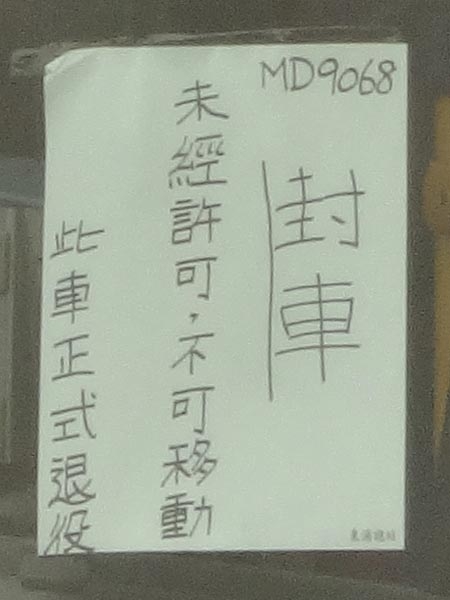 MD9068
封車
未經許可，不可移動
此車正式退役